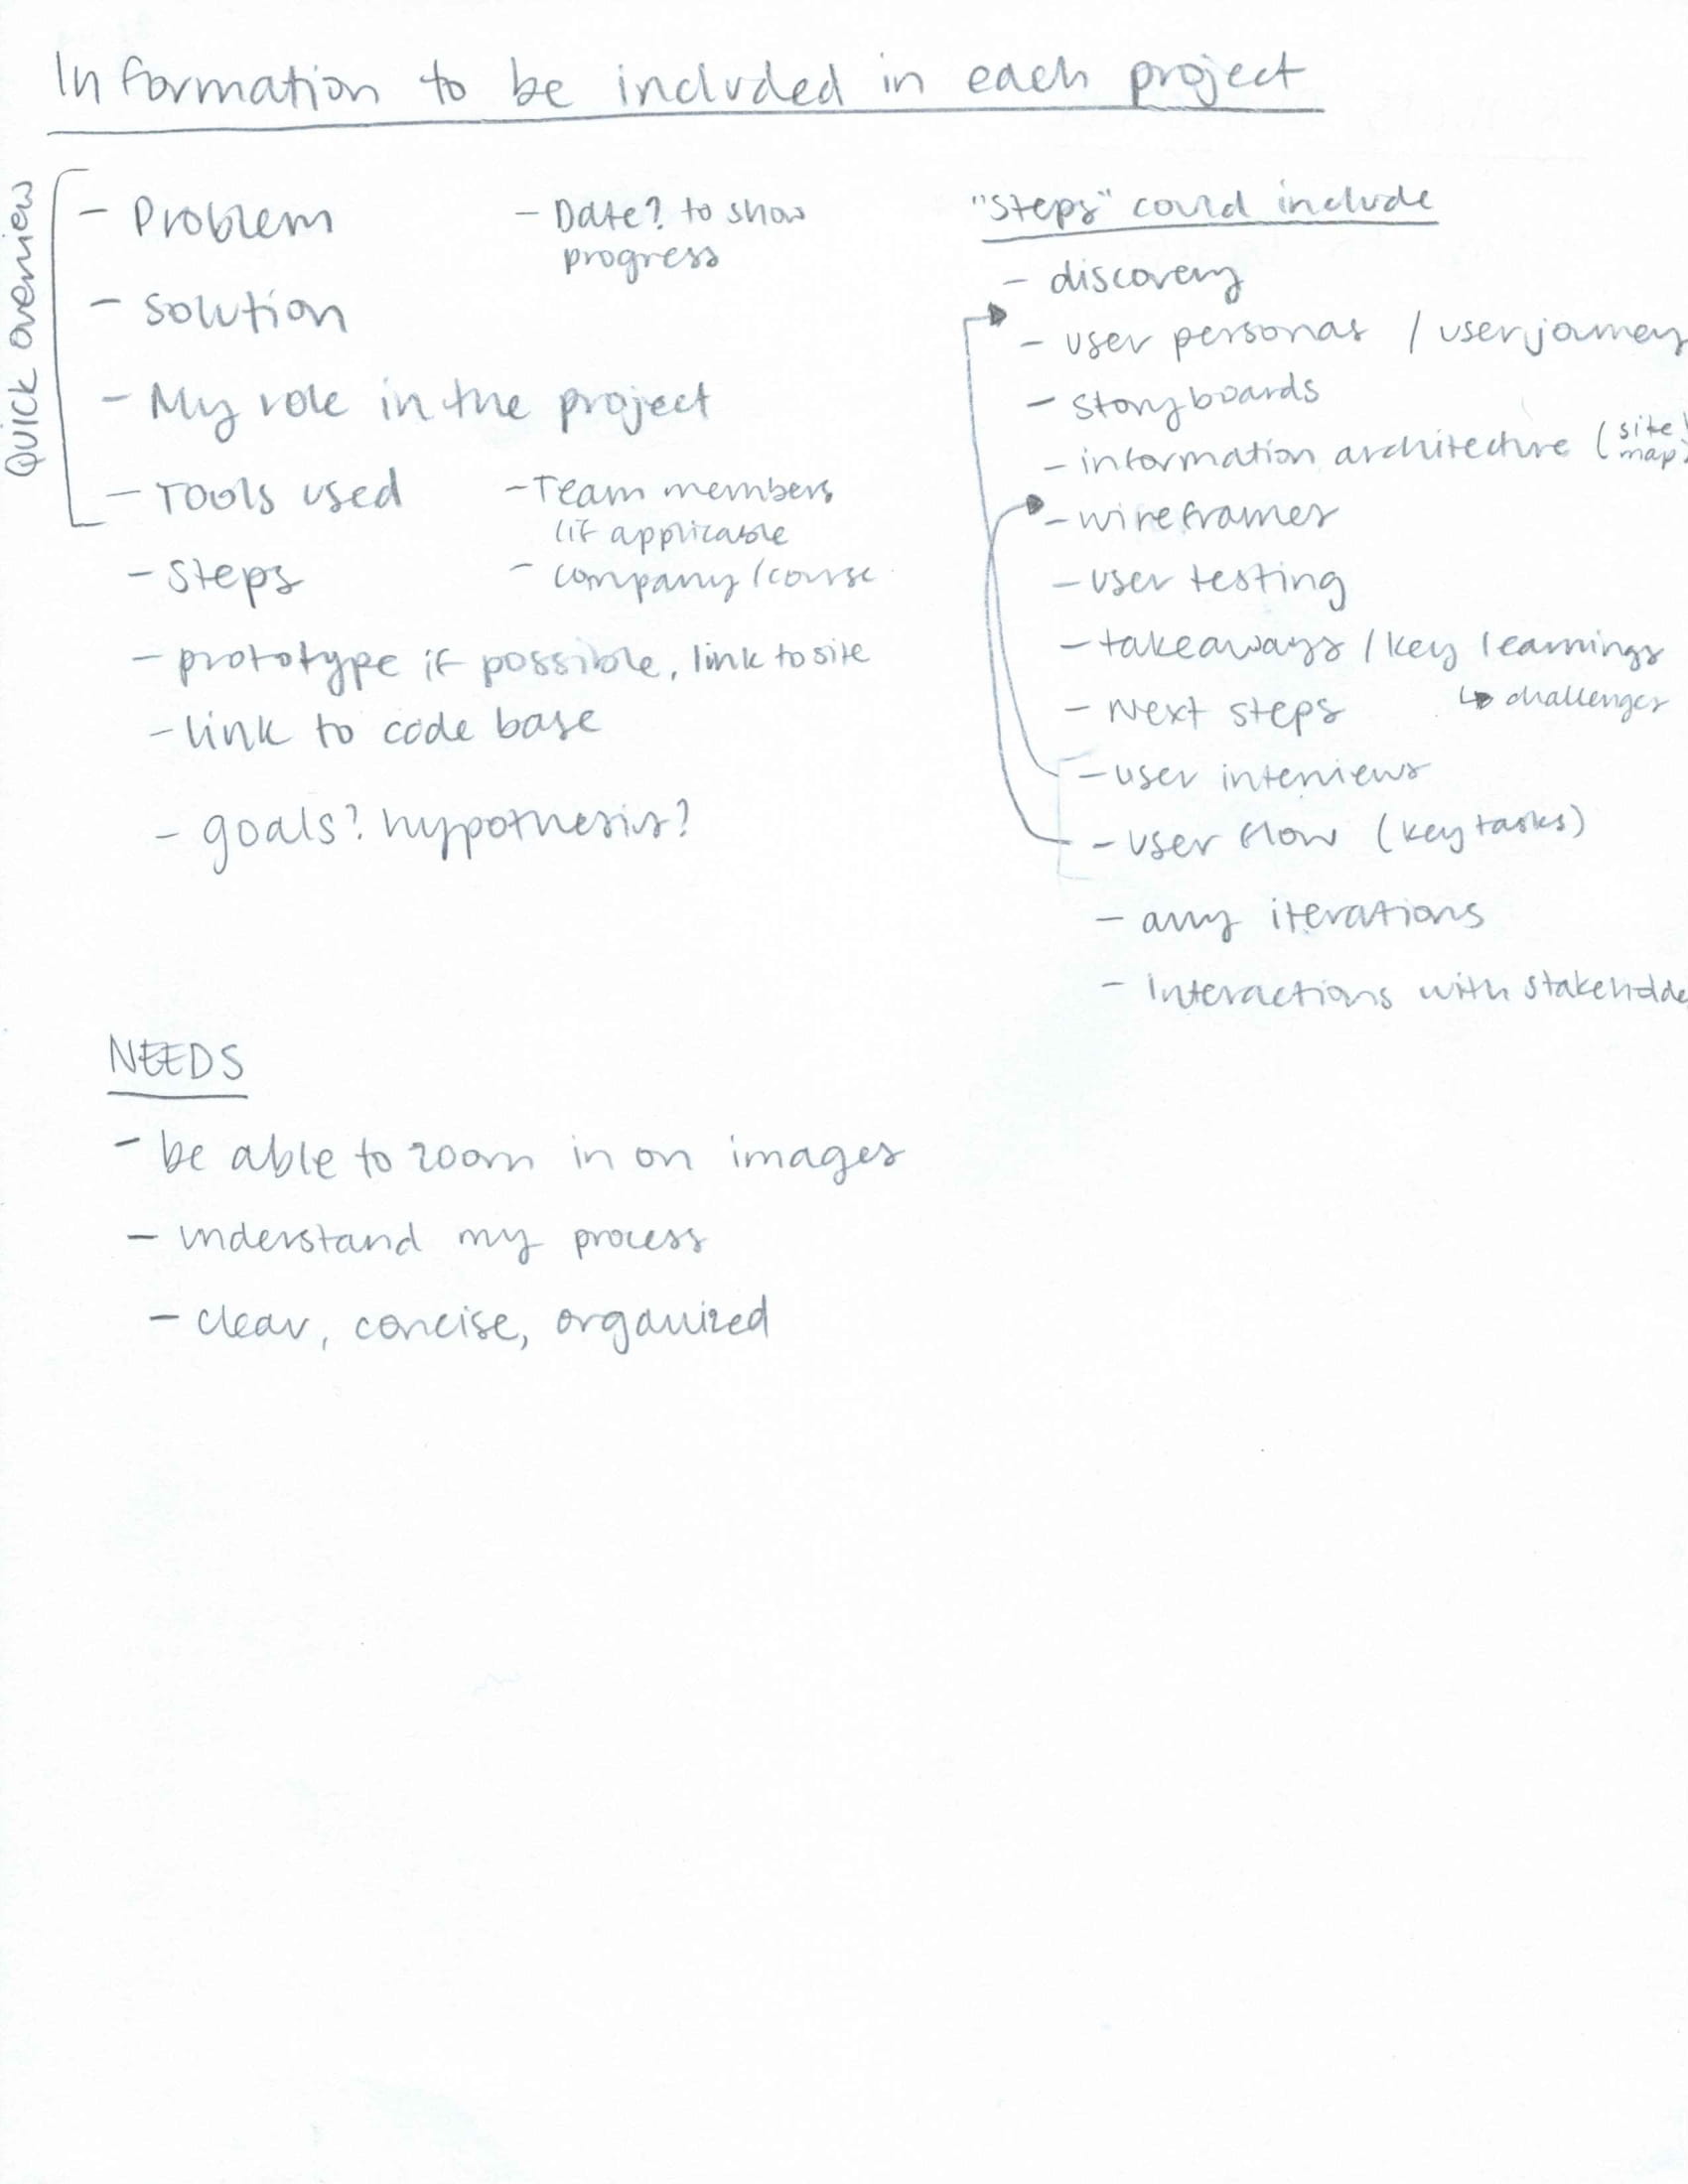 Information to be included in each project
Quick overview
- Problem
- Solution
- My role in the project
- Tools used
- Steps
- prototype if possible, link to site
- link to code base
- goals? hypothesis?
- Date? to show
progress
- Team members
(if applicable
- company / course
"Steps" could include
- discovery
- user personas / user journey
- storyboards
- information architecture (site map)
- wireframes
- user testing
- takeaways / key learnings
↳ challenges
- Next steps
- user interviews
- user flow (key tasks)
- any iterations
- Interactions with stakeholde
NEEDS
- be able to zoom in on images
- understand my process
- clear, concise, organized